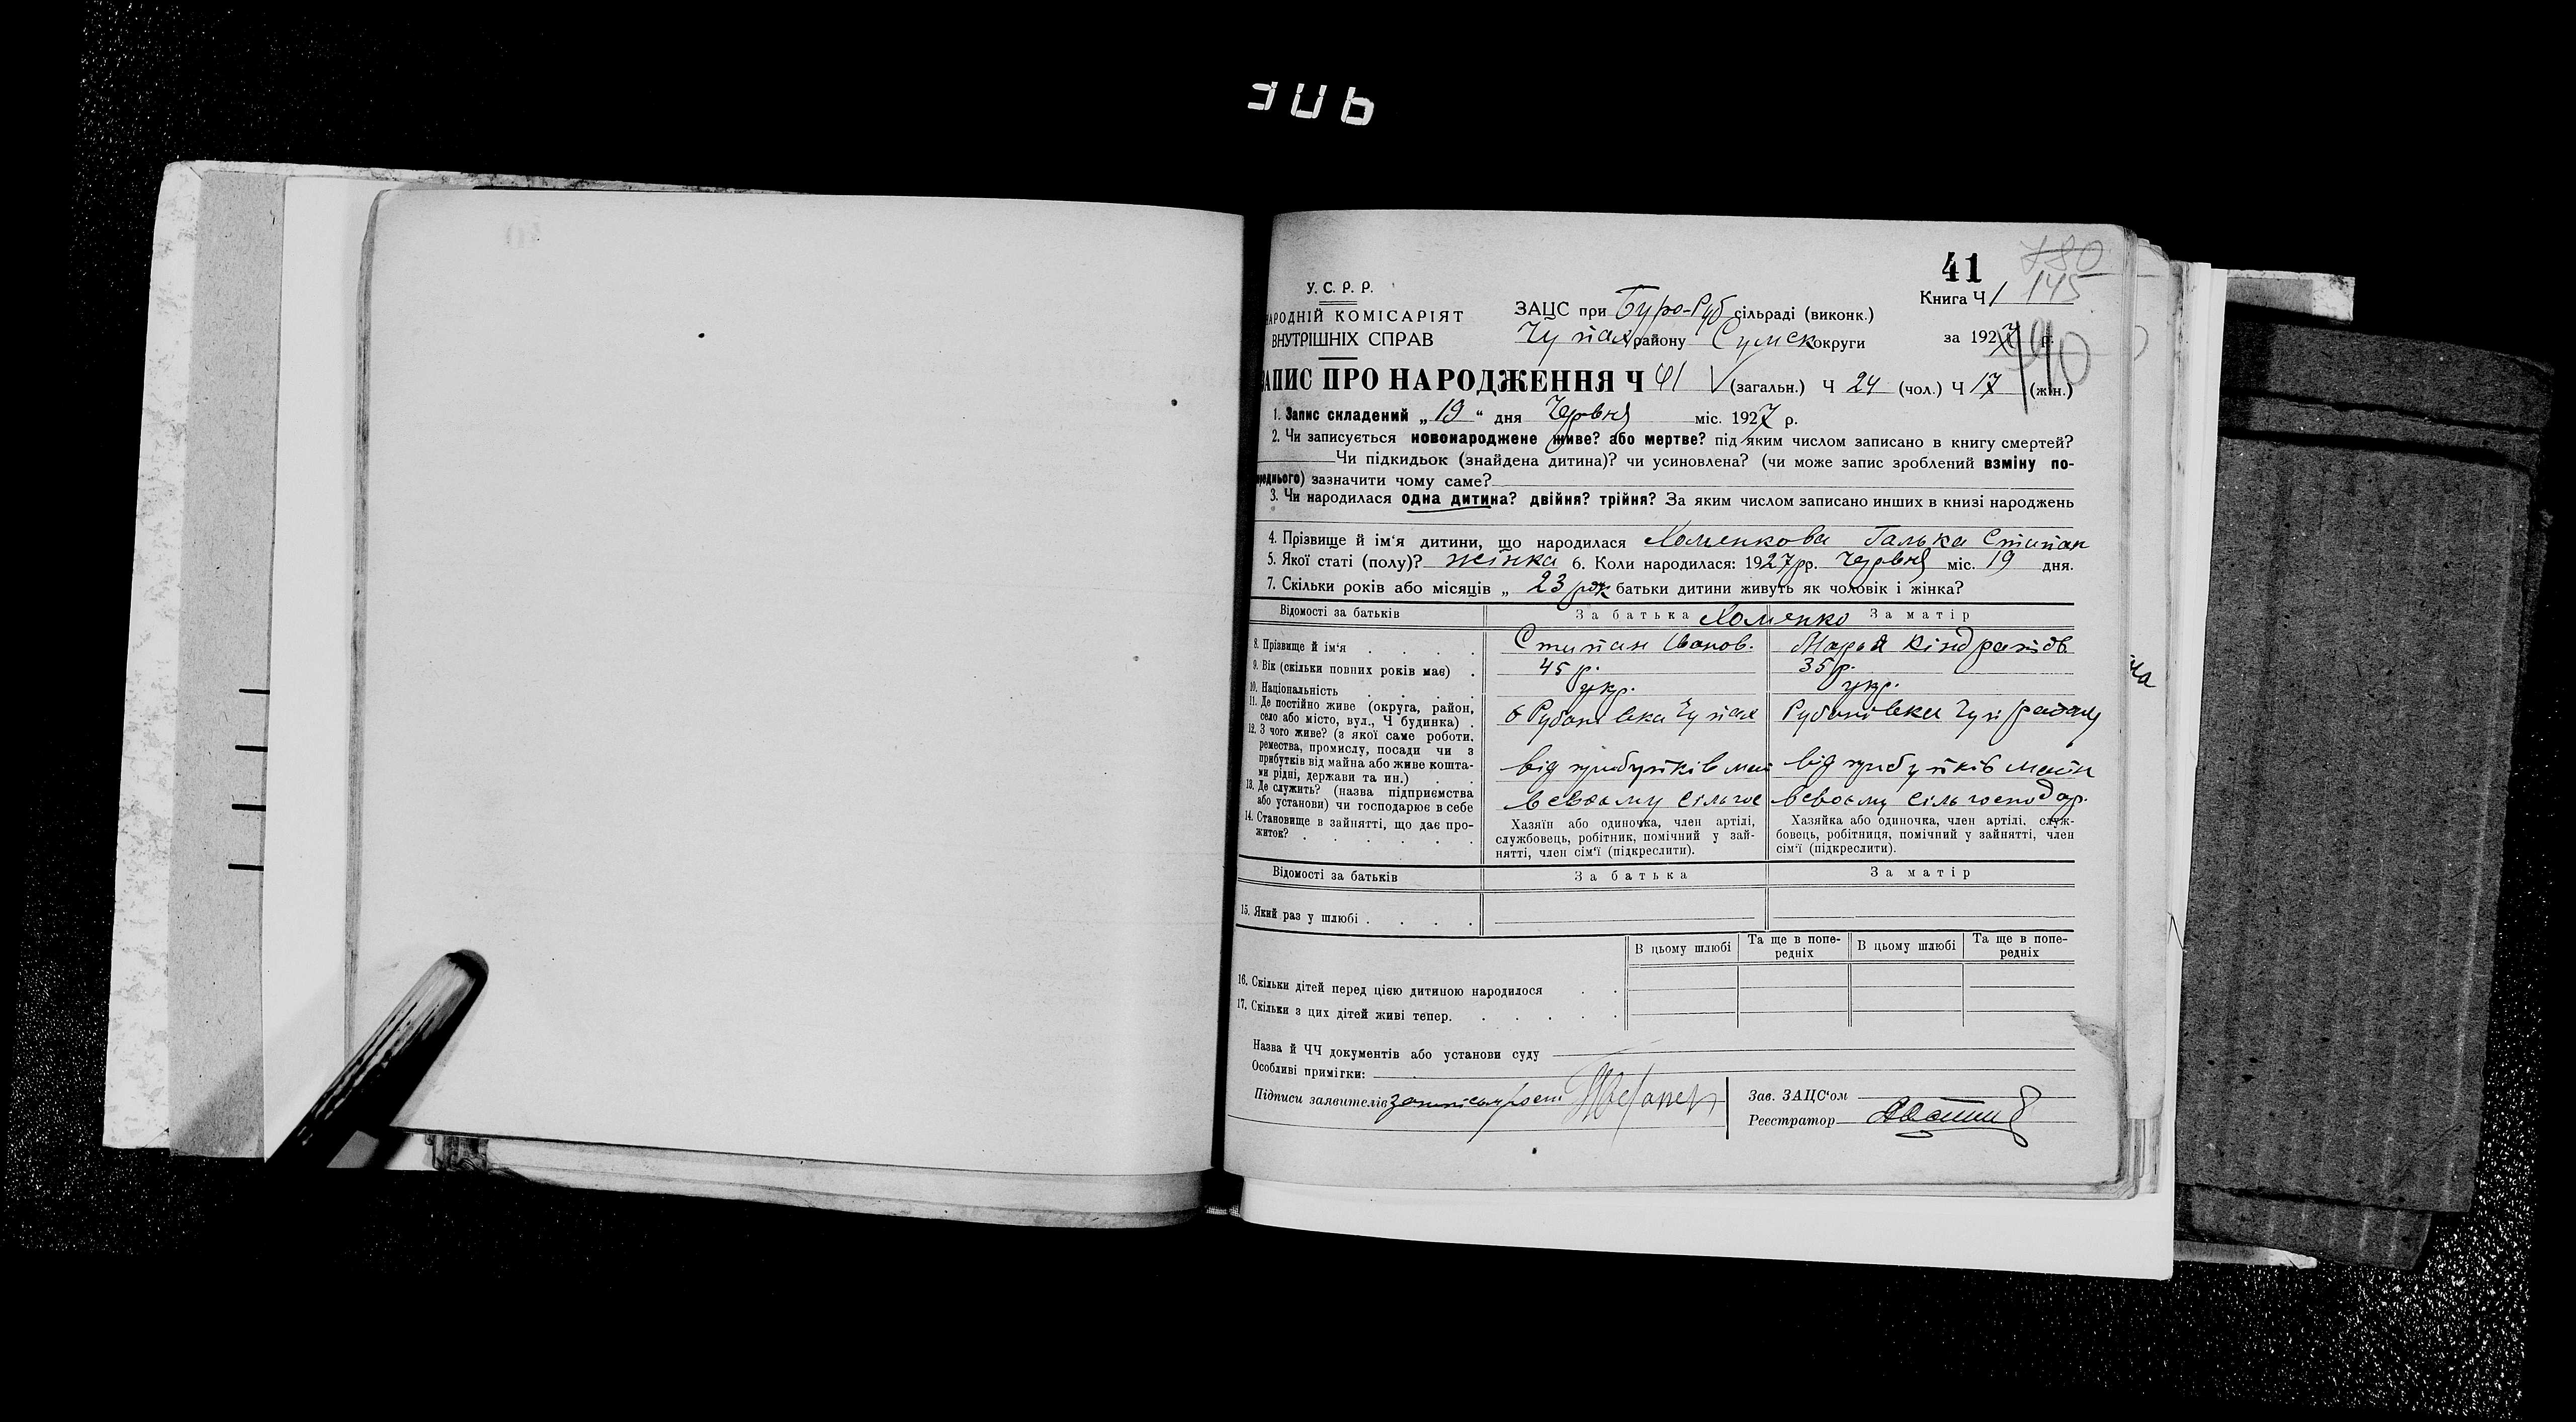 41
780
145
У. С. Р. Р.
НАРОДНІЙ КОМІСАРІЯТ
ВНУТРІШНІХ СПРАВ
ЗАЦС при Буро-Руб сільраді (виконк.)
Чупах району Сумск округи
Книга Ч 1
за 1927 р.
440
ЗАПИС ПРО НАРОДЖЕННЯ Ч 41 (загальн.) Ч 24 (чол.) Ч 17 (жін.)
1. Запис складений „ 19 “ дня Червня міс. 1927 р.
2. Чи записується новонароджене живе? або мертве? під яким числом записано в книгу смертей?
Чи підкидьок (знайдена дитина)? чи усиновлена? (чи може запис зроблений взміну по-
реднього) зазначити чому саме?
3. Чи народилася одна дитина? двійня? трійня? За яким числом записано инших в книзі народжень
4. Прізвище й ім'я дитини, що народилася Хоменкова Галька Стипан
5. Якої статі (полу)? жінка 6. Коли народилася: 1927 рр. Червня міс. 19 дня.
7. Скільки років або місяців „ 23 рок батьки дитини живуть як чоловік і жінка?
Відомості за батьків За батька Хоменко За матір
8. Прізвище й ім'я Стипан Иванов. Марья Кіндратів
9. Вік (скільки повних років має) 45 р. 35 р.
10. Національність укр. укр.
11. Де постійно живе (округа, район,
село або місто, вул., Ч будинка) Б Рубанівка Чупах Рубанівка Чуп району
12. З чого живе? (з якої саме роботи,
ремества, промислу, посади чи з
прибутків від майна або живе кошта-
ми рідні, держави та ин.) від прибутків май від прибутків майн
13. Де служить? (назва підприємства
або установи) чи господарює в себе в своьму сільгос в своьму сільгосподар.
14. Становище в зайнятті, що дає про-
житок?
Хазяїн або одиночка, член артілі,
службовець, робітник, помічний у зай-
нятті, член сім'ї (підкреслити).
Хазяйка або одиночка, член артілі, служ-
бовець, робітниця, помічний у зайнятті, член
сім'ї (підкреслити).
Відомості за батьків За батька За матір
15. Який раз у шлюбі
В цьому шлюбі Та ще в попе-
редніх В цьому шлюбі Та ще в попе-
редніх
16. Скільки дітей перед цією дитиною народилося
17. Скільки з цих дітей живі тепер.
Назва й ЧЧ документів або установи суду
Особливі примітки:
Підписи заявителів
Зав. ЗАЦС'ом
Реєстратор